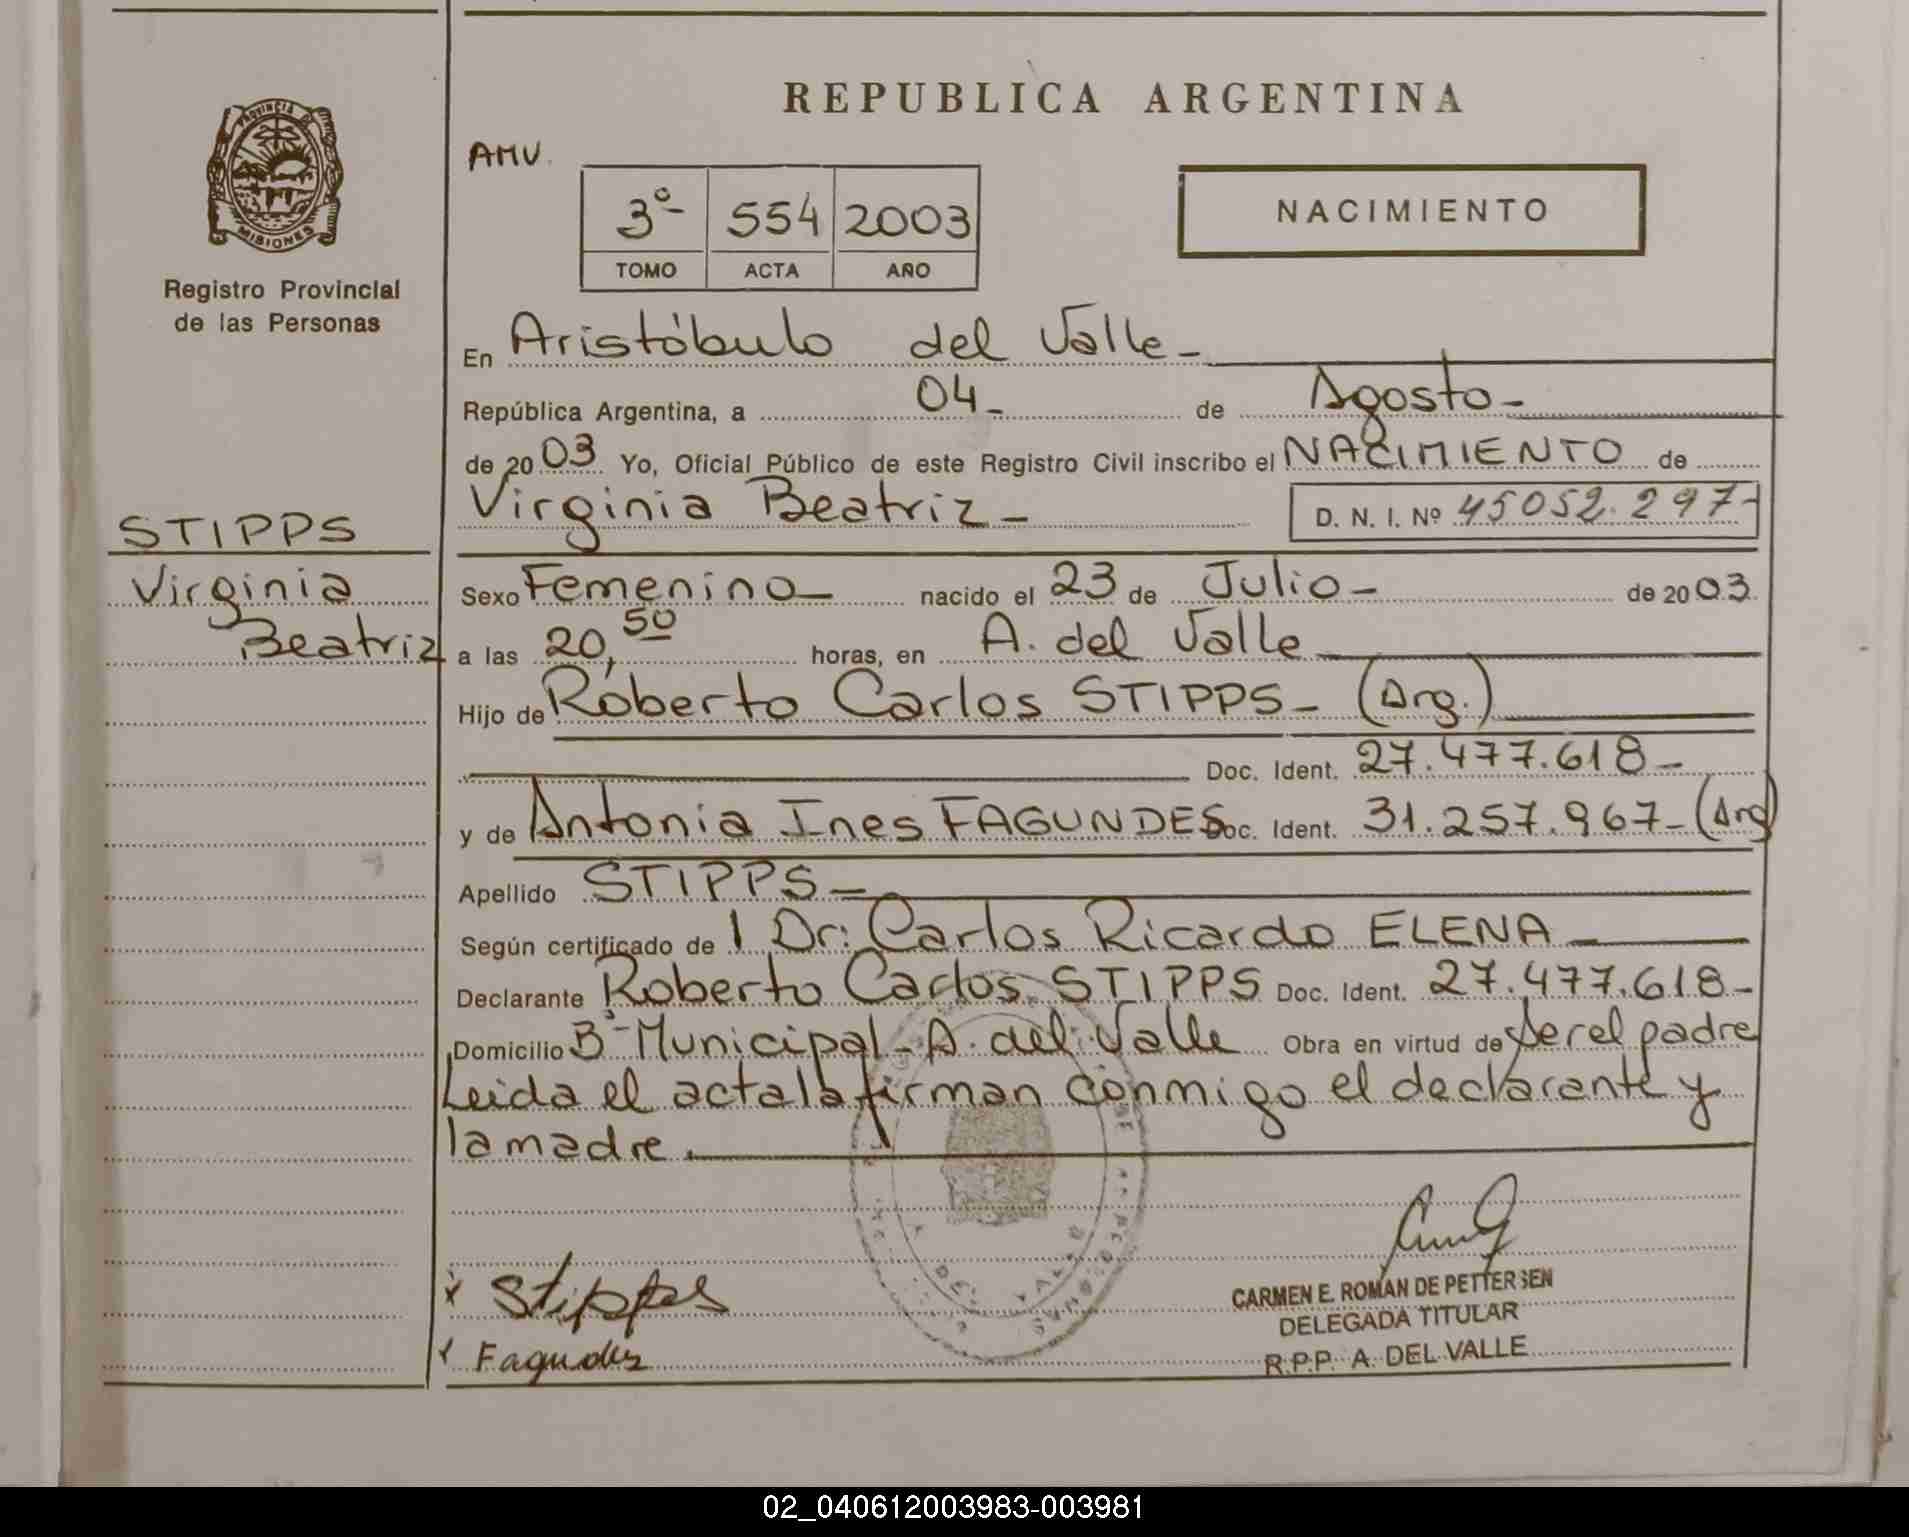 REPUBLICA ARGENTINA
PROVINCIA DE
MISIONES
Registro Provincial
de las Personas
AMV.
3º 554 2003
TOMO ACTA AÑO
NACIMIENTO
En Aristóbulo del Valle
República Argentina, a 04 de Agosto
de 2003 Yo, Oficial Público de este Registro Civil inscribo el NACIMIENTO de
Virginia Beatriz D. N. I. Nº 45052.297
STIPPS
Virginia
Beatriz
Sexo Femenino nacido el 23 de Julio de 2003
a las 20,50 horas, en A. del Valle
Hijo de Roberto Carlos STIPPS (Arg.)
Doc. Ident. 27.477.618
y de Antonia Ines FAGUNDES Doc. Ident. 31.257.967 (Arg)
Apellido STIPPS
Según certificado de l Dr: Carlos Ricardo ELENA
Declarante Roberto Carlos STIPPS Doc. Ident. 27.477.618
Domicilio Bº Municipal A. del Valle Obra en virtud de ser el padre
Leida el acta la firman conmigo el declarante y
la madre.
x Stipps
Fagudes
CARMEN E. ROMAN DE PETTERSEN
DELEGADA TITULAR
R.P.P. A. DEL VALLE
02_040612003983-003981